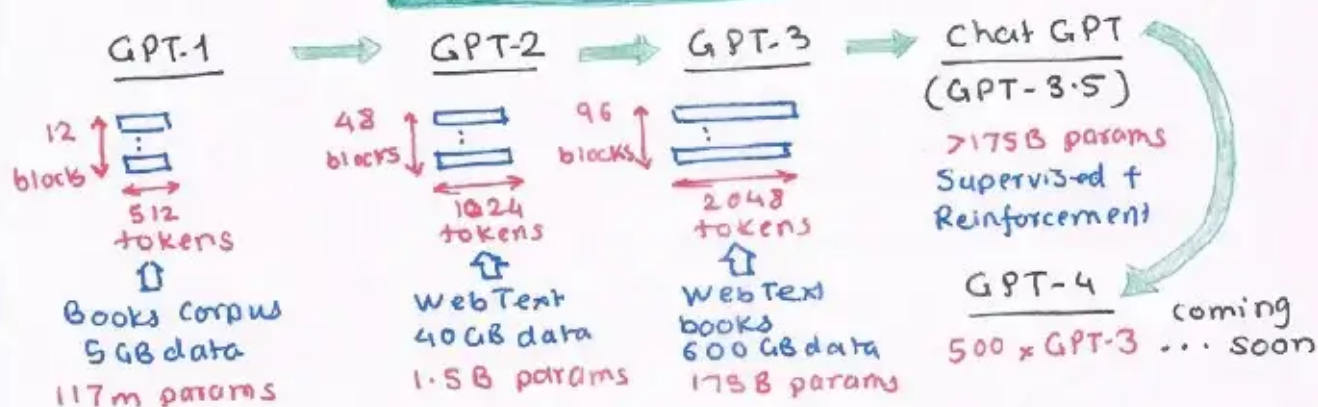 GPT-1
12
blocks
512
tokens
Books Corpus
5 GB data
117m params
GPT-2
48
blocks
1024
tokens
WebText
40 GB data
1.5B params
GPT-3
96
blocks
2048
tokens
WebText
books
600 GB data
175B params
Chat GPT
(GPT-3.5)
>175B params
Supervised +
Reinforcement
GPT-4
500 x GPT-3
coming
... soon